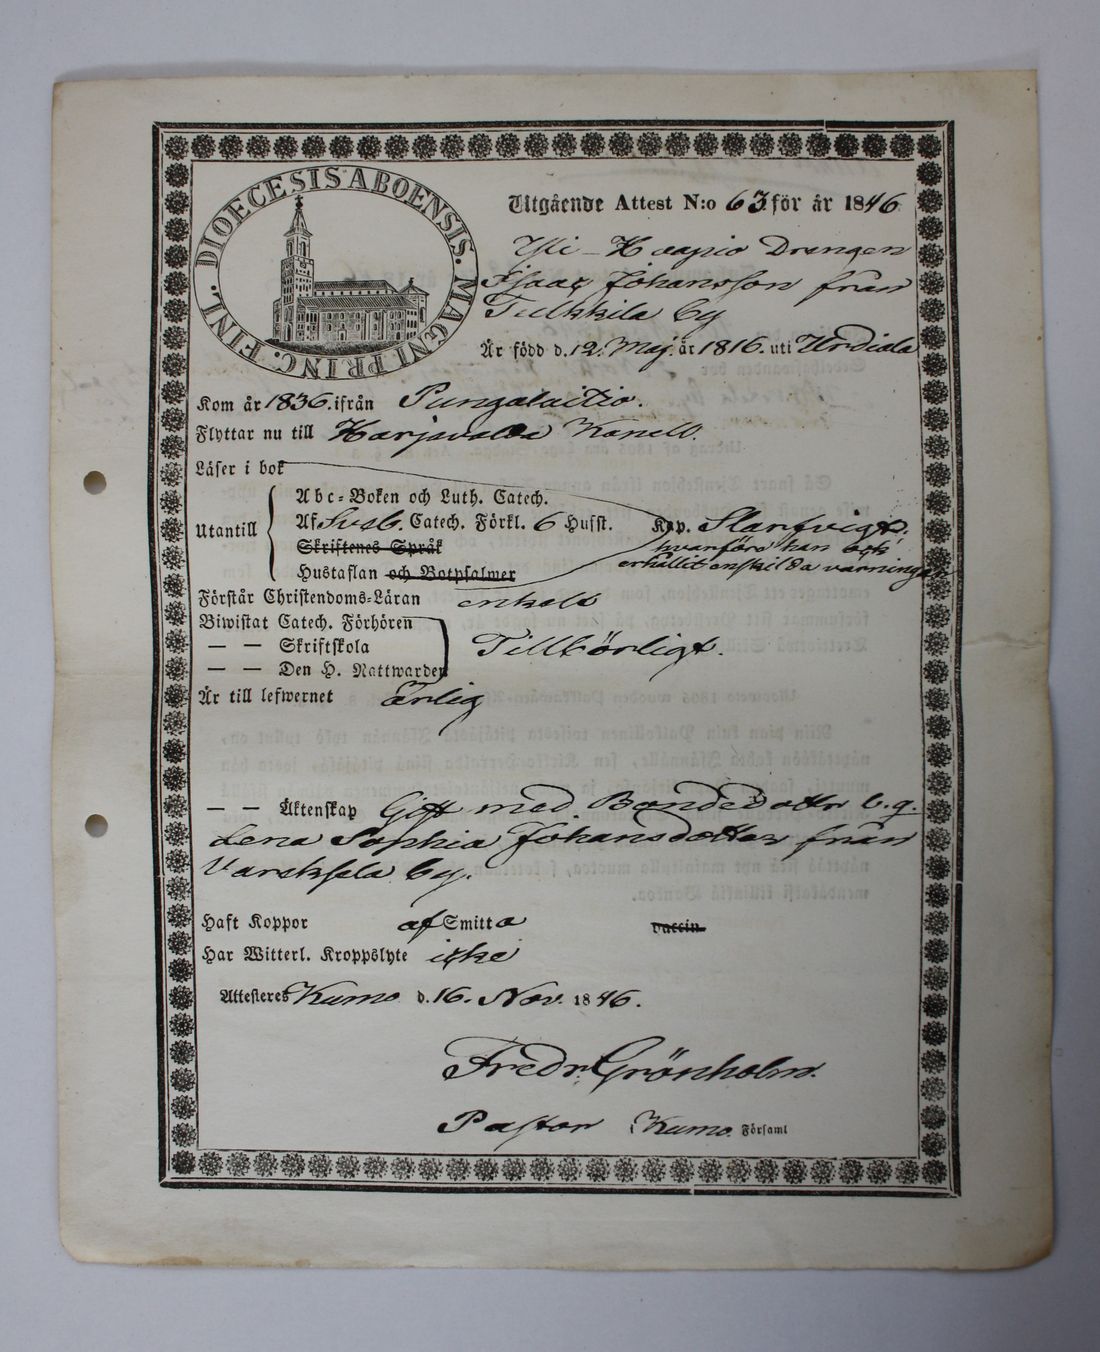 DIOECESIS ABOENSIS. MAGNI PRINC. FINL.
Utgående Attest N:o 63 för år 1846
Yli-Haapio Drengen
Isaac Johansson från
Tulkkila by
Är född d. 12. Maj. år 1816. uti Urdiala
Kom år 1836. ifrån Pungalaitio.
Flyttar nu till Harjavalda Kapell.
Läser i bok
Utantill
Abc-Boken och Luth. Catech.
Af Sveb. Catech. Förkl. 6 Husst. Kap. Slarfvigt.
Skriftenes Språk hvarföre han ock
Hustaflan och Botpsalmer erhållit enskilda varningar
Förstår Christendoms-Läran enkelt
Biwistat Catech. Förhören
— — Skriftskola Tillbörligt.
— — Den H. Nattwarden
Är till lefwernet Ärlig
— — Äktenskap Gift med Bondedottr b. q.
Lena Sophia Johansdotter från
by.
Haft Koppor af Smitta vaccin.
Har Witterl. Kroppslyte icke
Attesteres Kumo d. 16. Nov. 1846.
Fredr. Grönholm.
Pastor i Kumo Församl